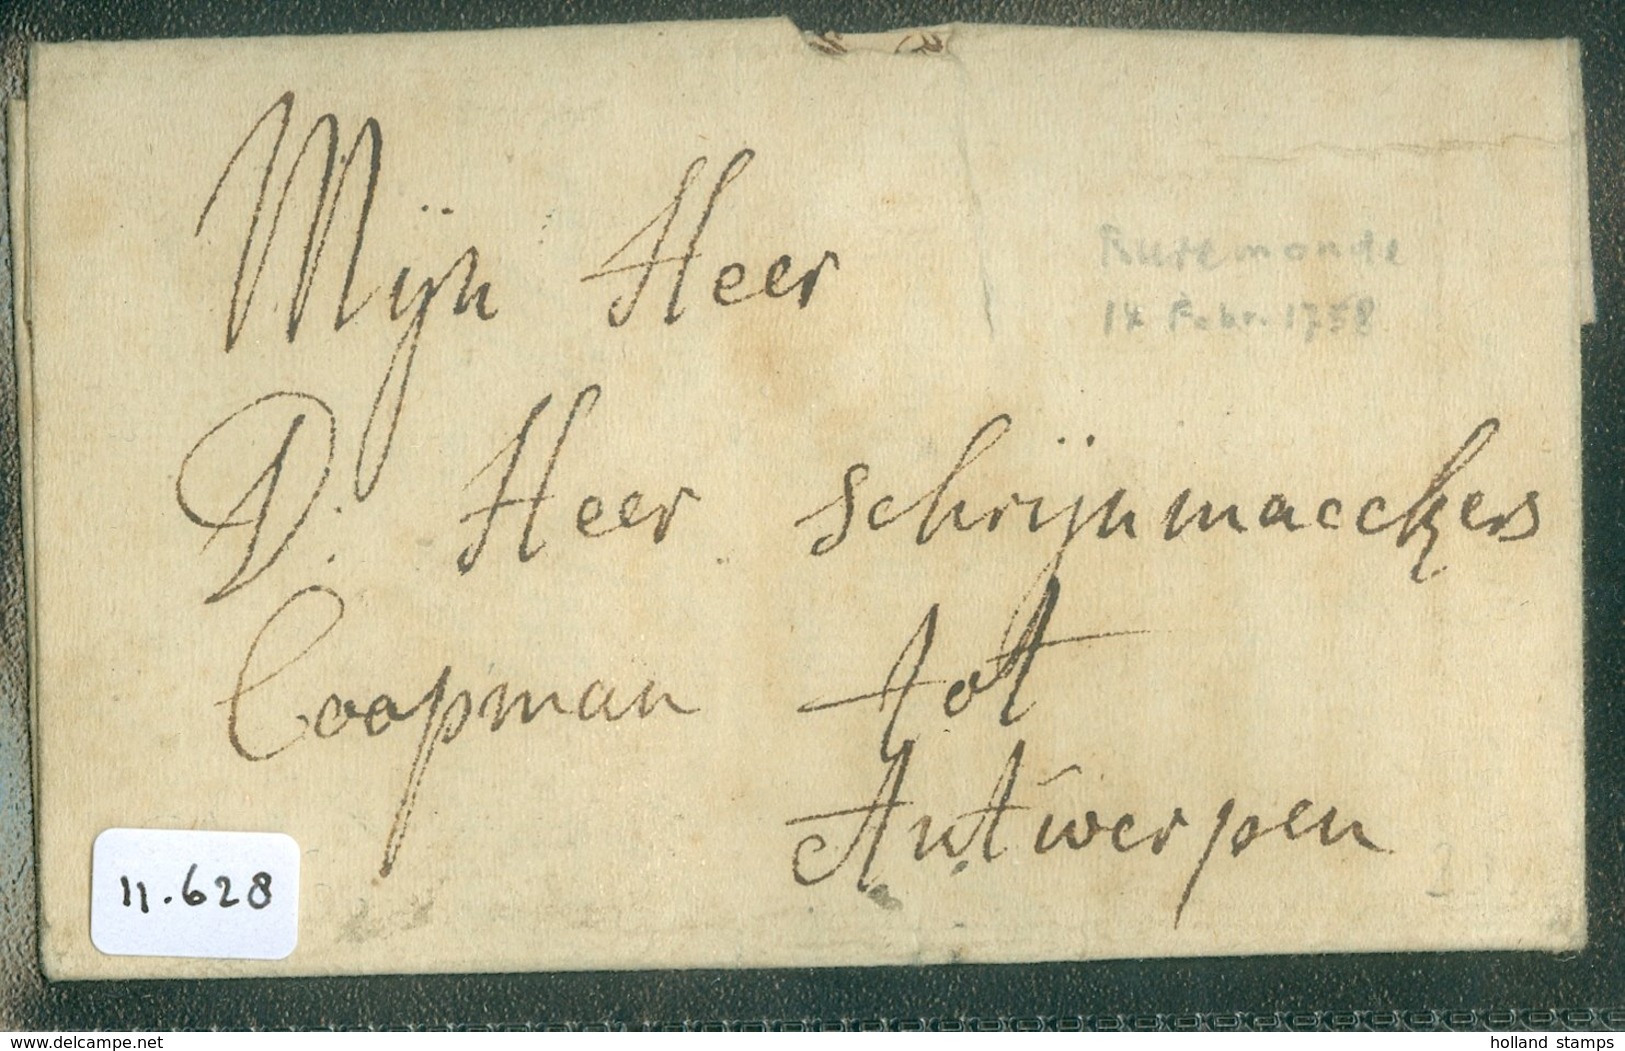 Mÿn Heer
Ruremonde
14 Febr. 1758
D: Heer schrÿnmaeckers
Coopman tot
Antwerpen
11.628
www.delcampe.net
holland stamps